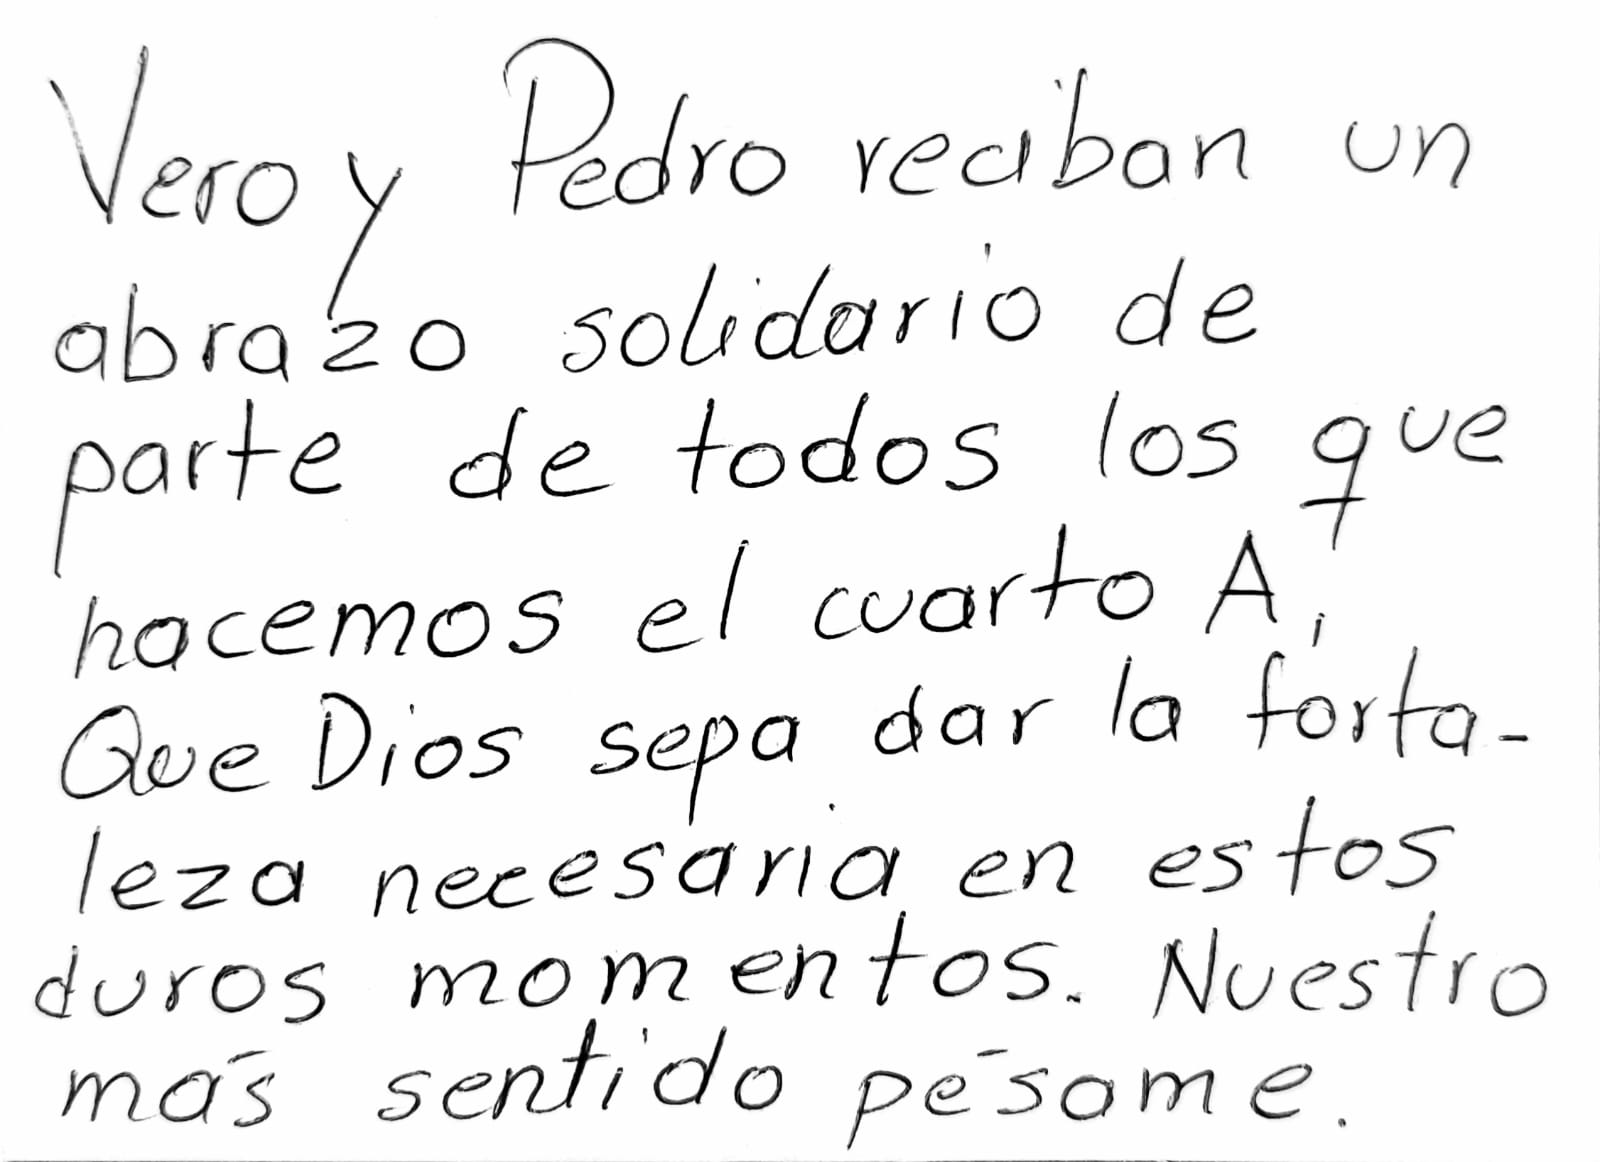 Vero y Pedro reciban un
abrazo solidario de
parte de todos los que
hacemos el cuarto A,
Que Dios sepa dar la forta-
leza necesaria en estos
duros momentos. Nuestro
más sentido pésame.